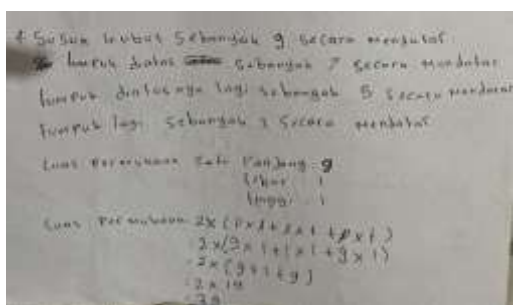 4 Susun kubus sebanyak 9 secara mendatar
tumpuk diatas sebanyak 7 secara mendatar
tumpuk diatasnya lagi sebanyak 5 secara mendatar
tumpuk lagi sebanyak 3 secara mendatar
Luas permukaan Panjang 9
Lebar 1
tinggi 1
Luas permukaan 2x(pxl+lxt+pxt)
2x(9x1+1x1+9x1)
2x(9+1+9)
2x19
38